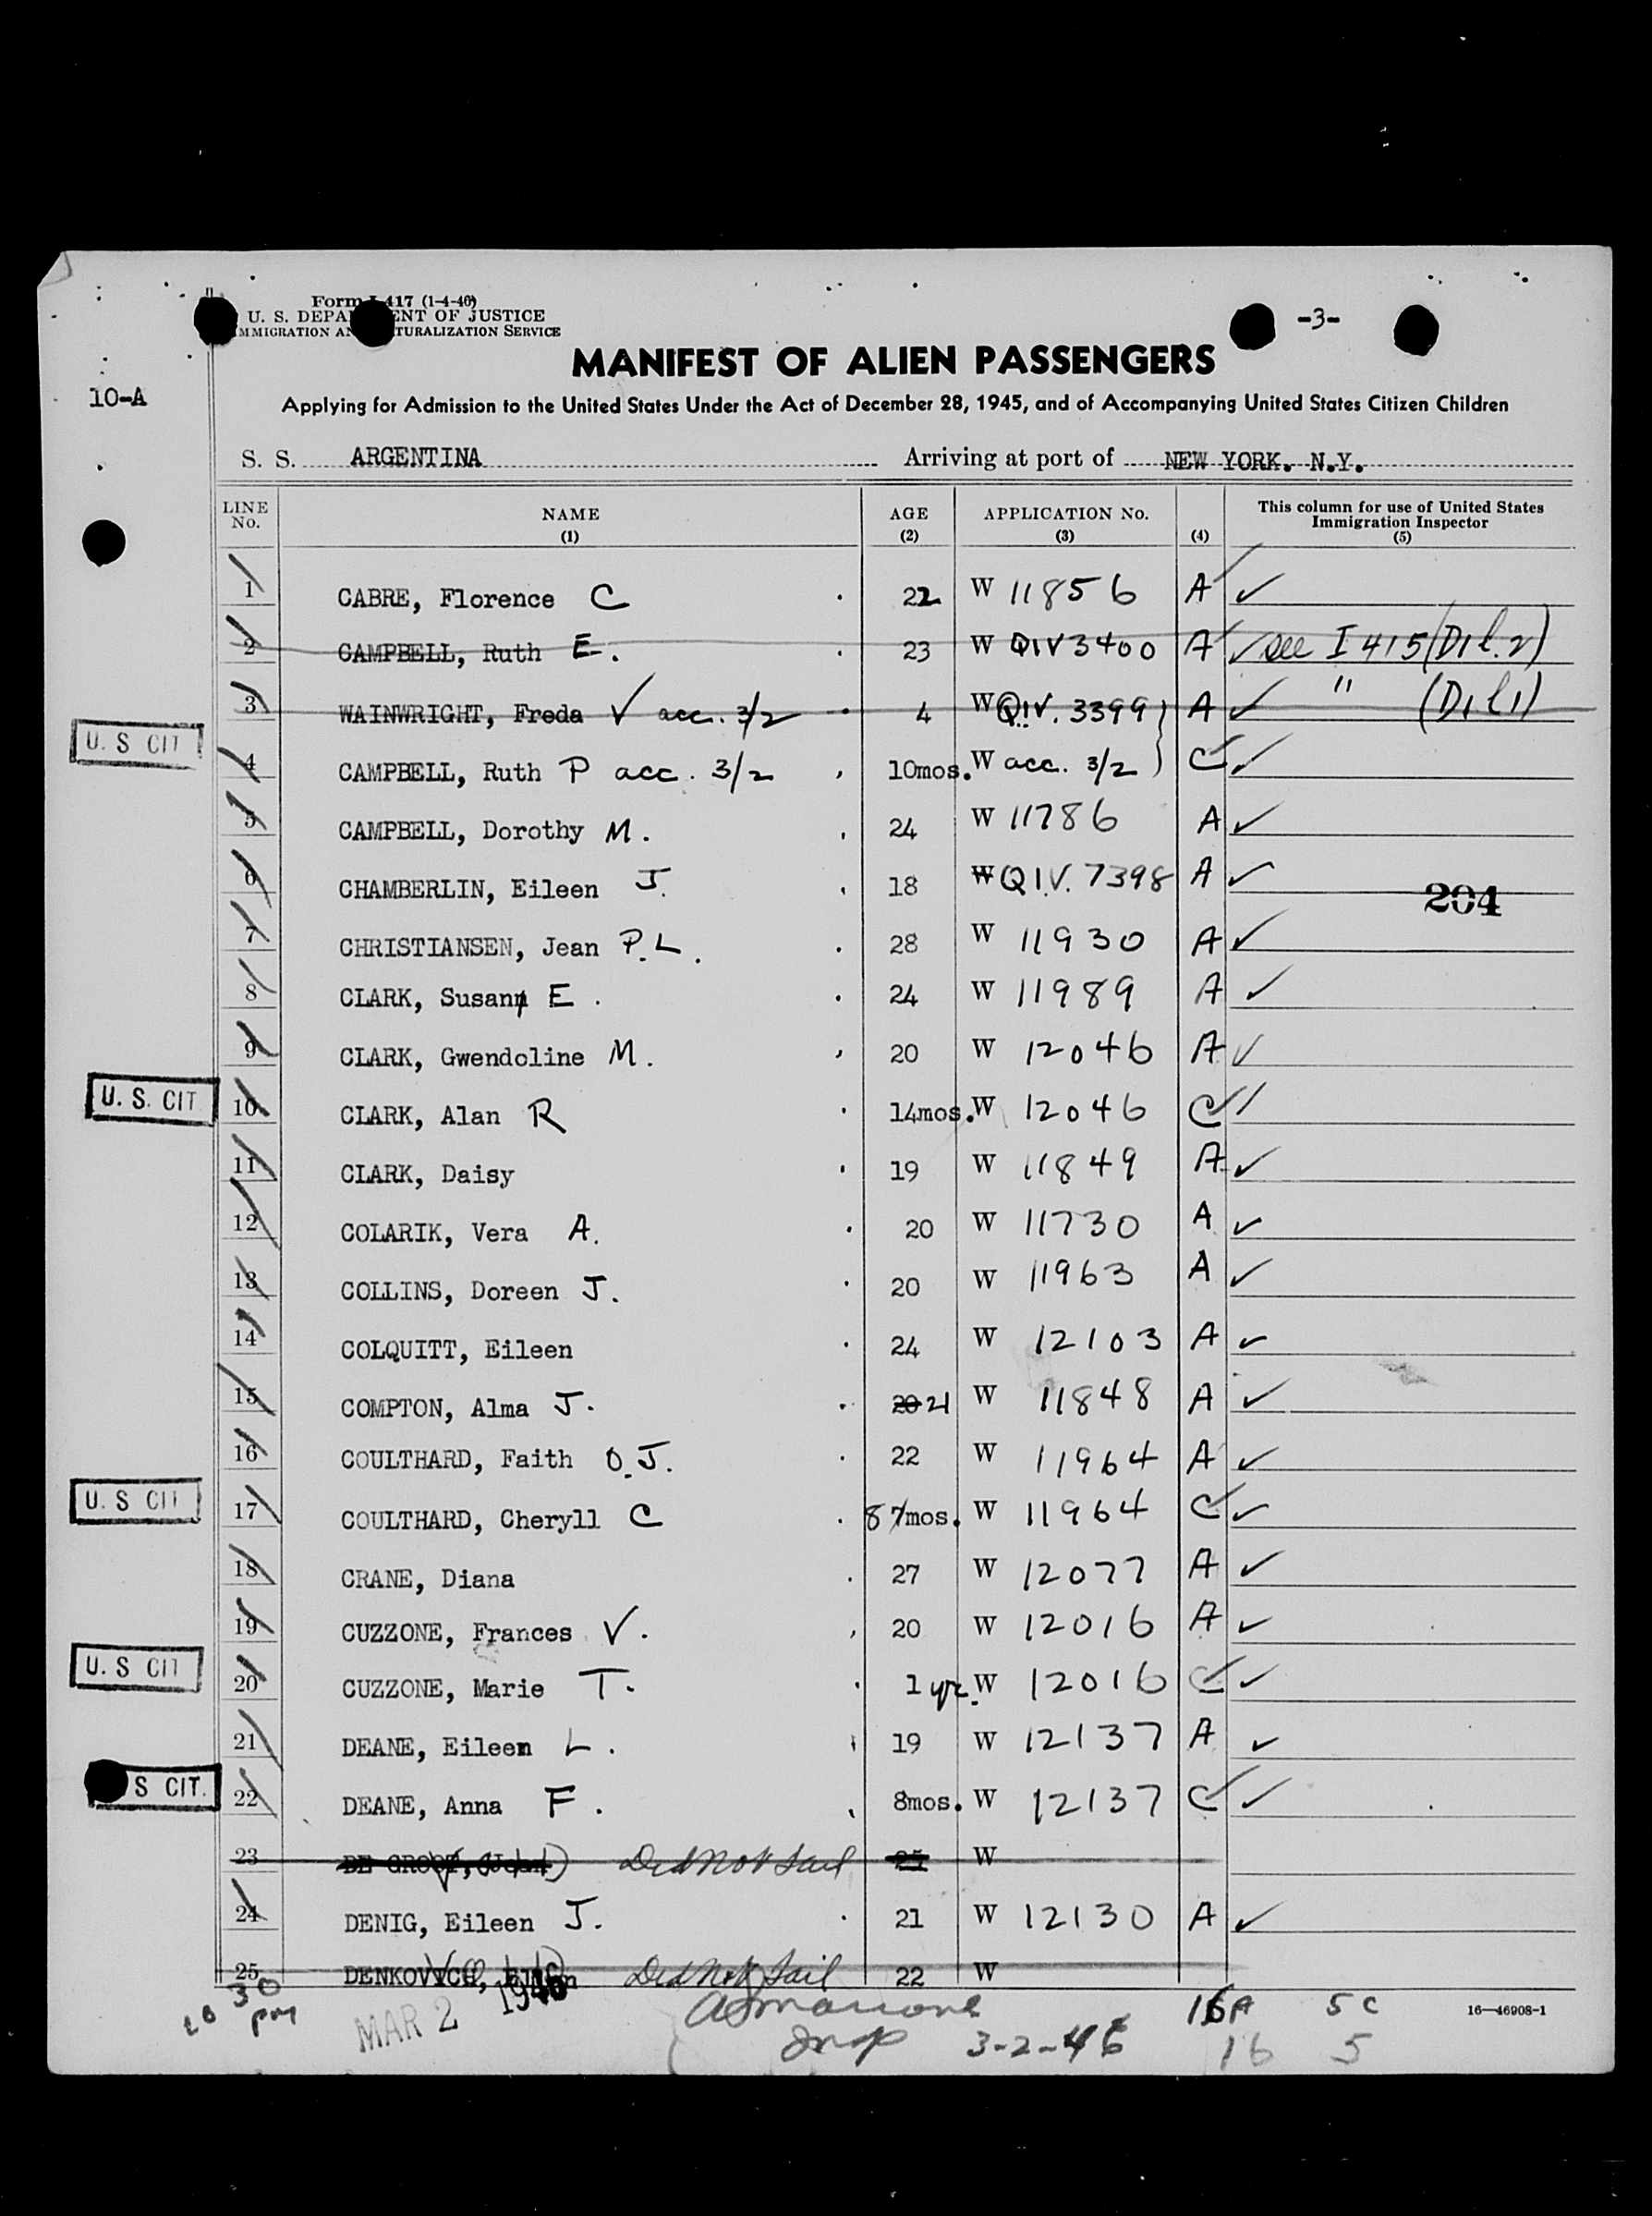 Form I-417 (1-4-46)
U. S. DEPARTMENT OF JUSTICE
IMMIGRATION AND NATURALIZATION SERVICE
-3-
MANIFEST OF ALIEN PASSENGERS
10-A
Applying for Admission to the United States Under the Act of December 28, 1945, and of Accompanying United States Citizen Children
S. S. ARGENTINA Arriving at port of NEW YORK. N.Y.
LINE No. NAME (1) AGE (2) APPLICATION No. (3) (4) This column for use of United States Immigration Inspector (5)
1 CABRE, Florence C 22 W 11856 A ✓
2 CAMPBELL, Ruth E. 23 W QIV 3400 A ✓ see I 415 (D1 l.2)
3 WAINWRIGHT, Freda V acc. 3/2 4 W QIV. 3399 A ✓ " (D1 l1)
U. S CIT 4 CAMPBELL, Ruth P acc. 3/2 10mos. W acc. 3/2 C ✓
5 CAMPBELL, Dorothy M. 24 W 11786 A ✓
6 CHAMBERLIN, Eileen J. 18 W QIV. 7398 A ✓
204
7 CHRISTIANSEN, Jean P.L. 28 W 11930 A ✓
8 CLARK, Susann E. 24 W 11989 A ✓
9 CLARK, Gwendoline M. 20 W 12046 A ✓
U. S. CIT 10 CLARK, Alan R 14mos. W 12046 C ✓
11 CLARK, Daisy 19 W 11849 A ✓
12 COLARIK, Vera A. 20 W 11730 A ✓
13 COLLINS, Doreen J. 20 W 11963 A ✓
14 COLQUITT, Eileen 24 W 12103 A ✓
15 COMPTON, Alma J. 20 21 W 11848 A ✓
16 COULTHARD, Faith O.J. 22 W 11964 A ✓
U. S CIT 17 COULTHARD, Cheryll C 8 7mos. W 11964 C ✓
18 CRANE, Diana 27 W 12077 A ✓
19 CUZZONE, Frances V. 20 W 12016 A ✓
U. S CIT 20 CUZZONE, Marie T. 1 yr. W 12016 C ✓
21 DEANE, Eileen L. 19 W 12137 A ✓
S CIT. 22 DEANE, Anna F. 8mos. W 12137 C ✓
23 DE GROOT, Did Not Sail 25 W
24 DENIG, Eileen J. 21 W 12130 A ✓
25 DENKOVICH, Did Not Sail 22 W
30 pm MAR 2 1946 16A 5 C 16—46908-1
Insp 3-2-46 16 5